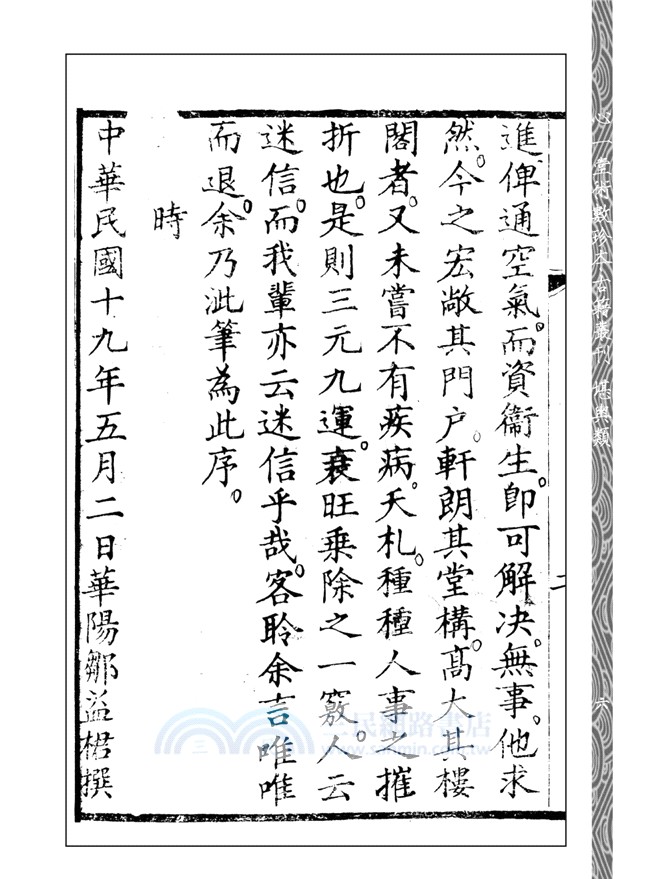 心一堂術數珍本古籍叢刊 堪輿類
六
二
進俾通空氣。而資衞生。即可解決。無事。他求
然。今之宏敞其門户。軒朗其堂構。高大其樓
閣者。又未嘗不有疾病。夭札。種種人事之摧
折也。是則三元九運。衰旺乗除之一竅。人云
迷信。而我輩亦云迷信乎哉。客聆余言唯唯
而退。余乃泚筆為此序。
時
中華民國十九年五月二日華陽鄒益楷撰
三民網路書店
www.sanmin.com.tw